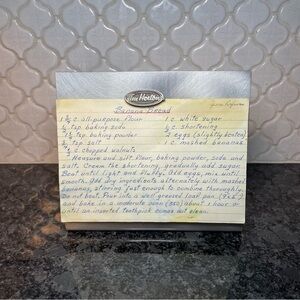 Tim Hortons
Banana Bread
1 ¾ c. all-purpose flour 1 c. white sugar
½ tsp. baking soda ½ c. shortening
1½ tsp. baking powder 2 eggs (slightly beaten)
½ tsp. salt 1 c. mashed bananas
½ c. chopped walnuts
Measure and sift flour, baking powder, soda and
salt. Cream the shortening, gradually add sugar.
Beat until light and fluffy. Add eggs, mix until
smooth. Add dry ingredients alternately with mashed
bananas, stirring just enough to combine thoroughly.
Do not beat. Pour into a well-greased loaf pan
and bake in a moderate oven (350) about 1 hour or
until an inserted toothpick comes out clean.